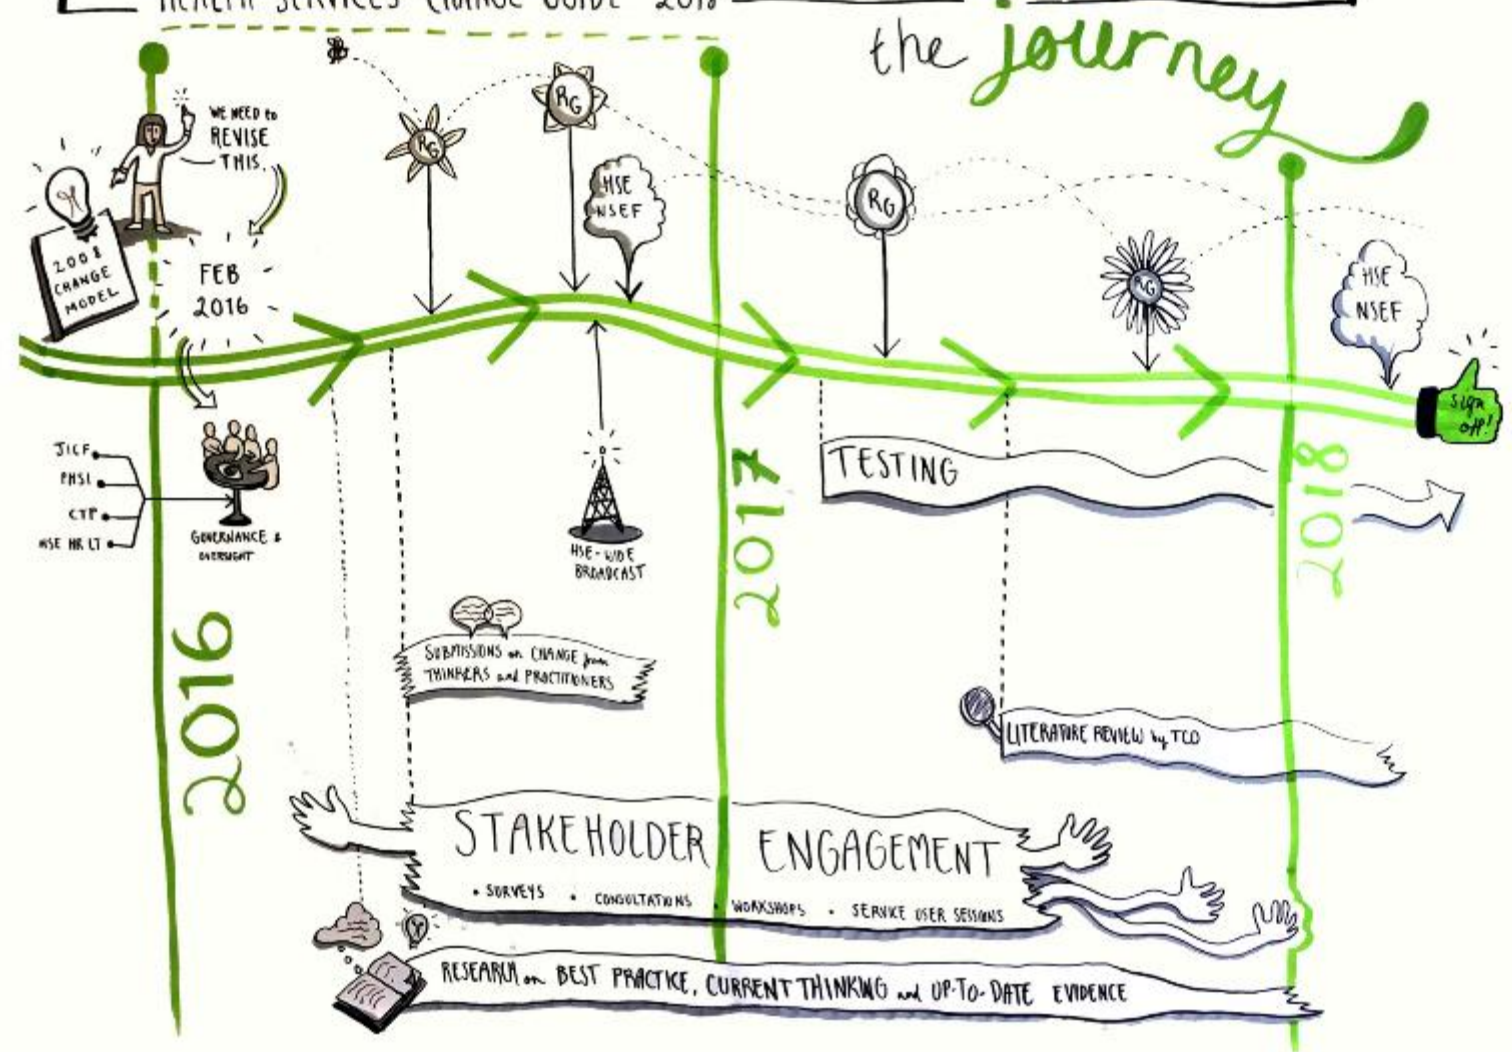 HEALTH SERVICES CHANGE GUIDE 2018
the journey
WE NEED to
REVISE
THIS
2008
CHANGE
MODEL
FEB
2016
RG
RG
HSE
NSEF
RG
RG
HSE
NSEF
sign
off!
JICF
PHSI
CTP
HSE HR LT
GOVERNANCE &
OVERSIGHT
HSE-WIDE
BROADCAST
2016
2017
2018
TESTING
SUBMISSIONS on CHANGE from
THINKERS and PRACTITIONERS
LITERATURE REVIEW by TCD
STAKEHOLDER ENGAGEMENT
• SURVEYS • CONSULTATIONS • WORKSHOPS • SERVICE USER SESSIONS
RESEARCH on BEST PRACTICE, CURRENT THINKING and UP-TO-DATE EVIDENCE